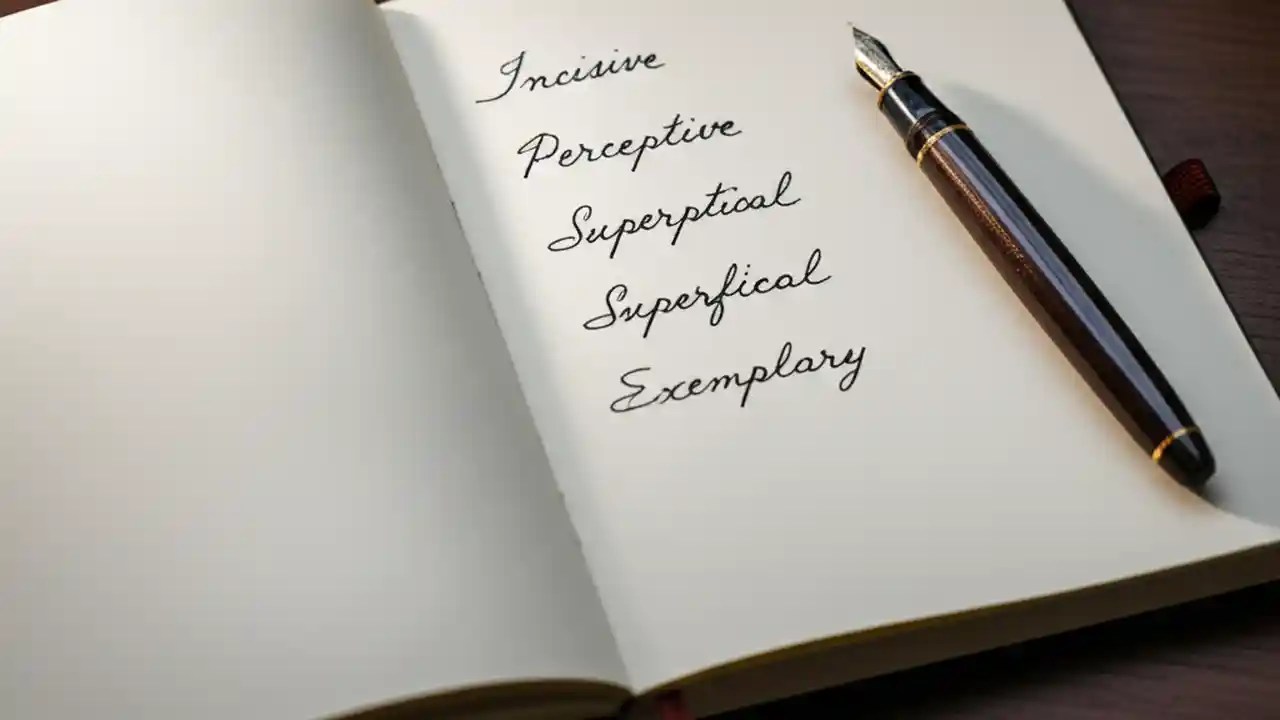 Incisive
Perceptive
Superptical
Superfical
Exemplary